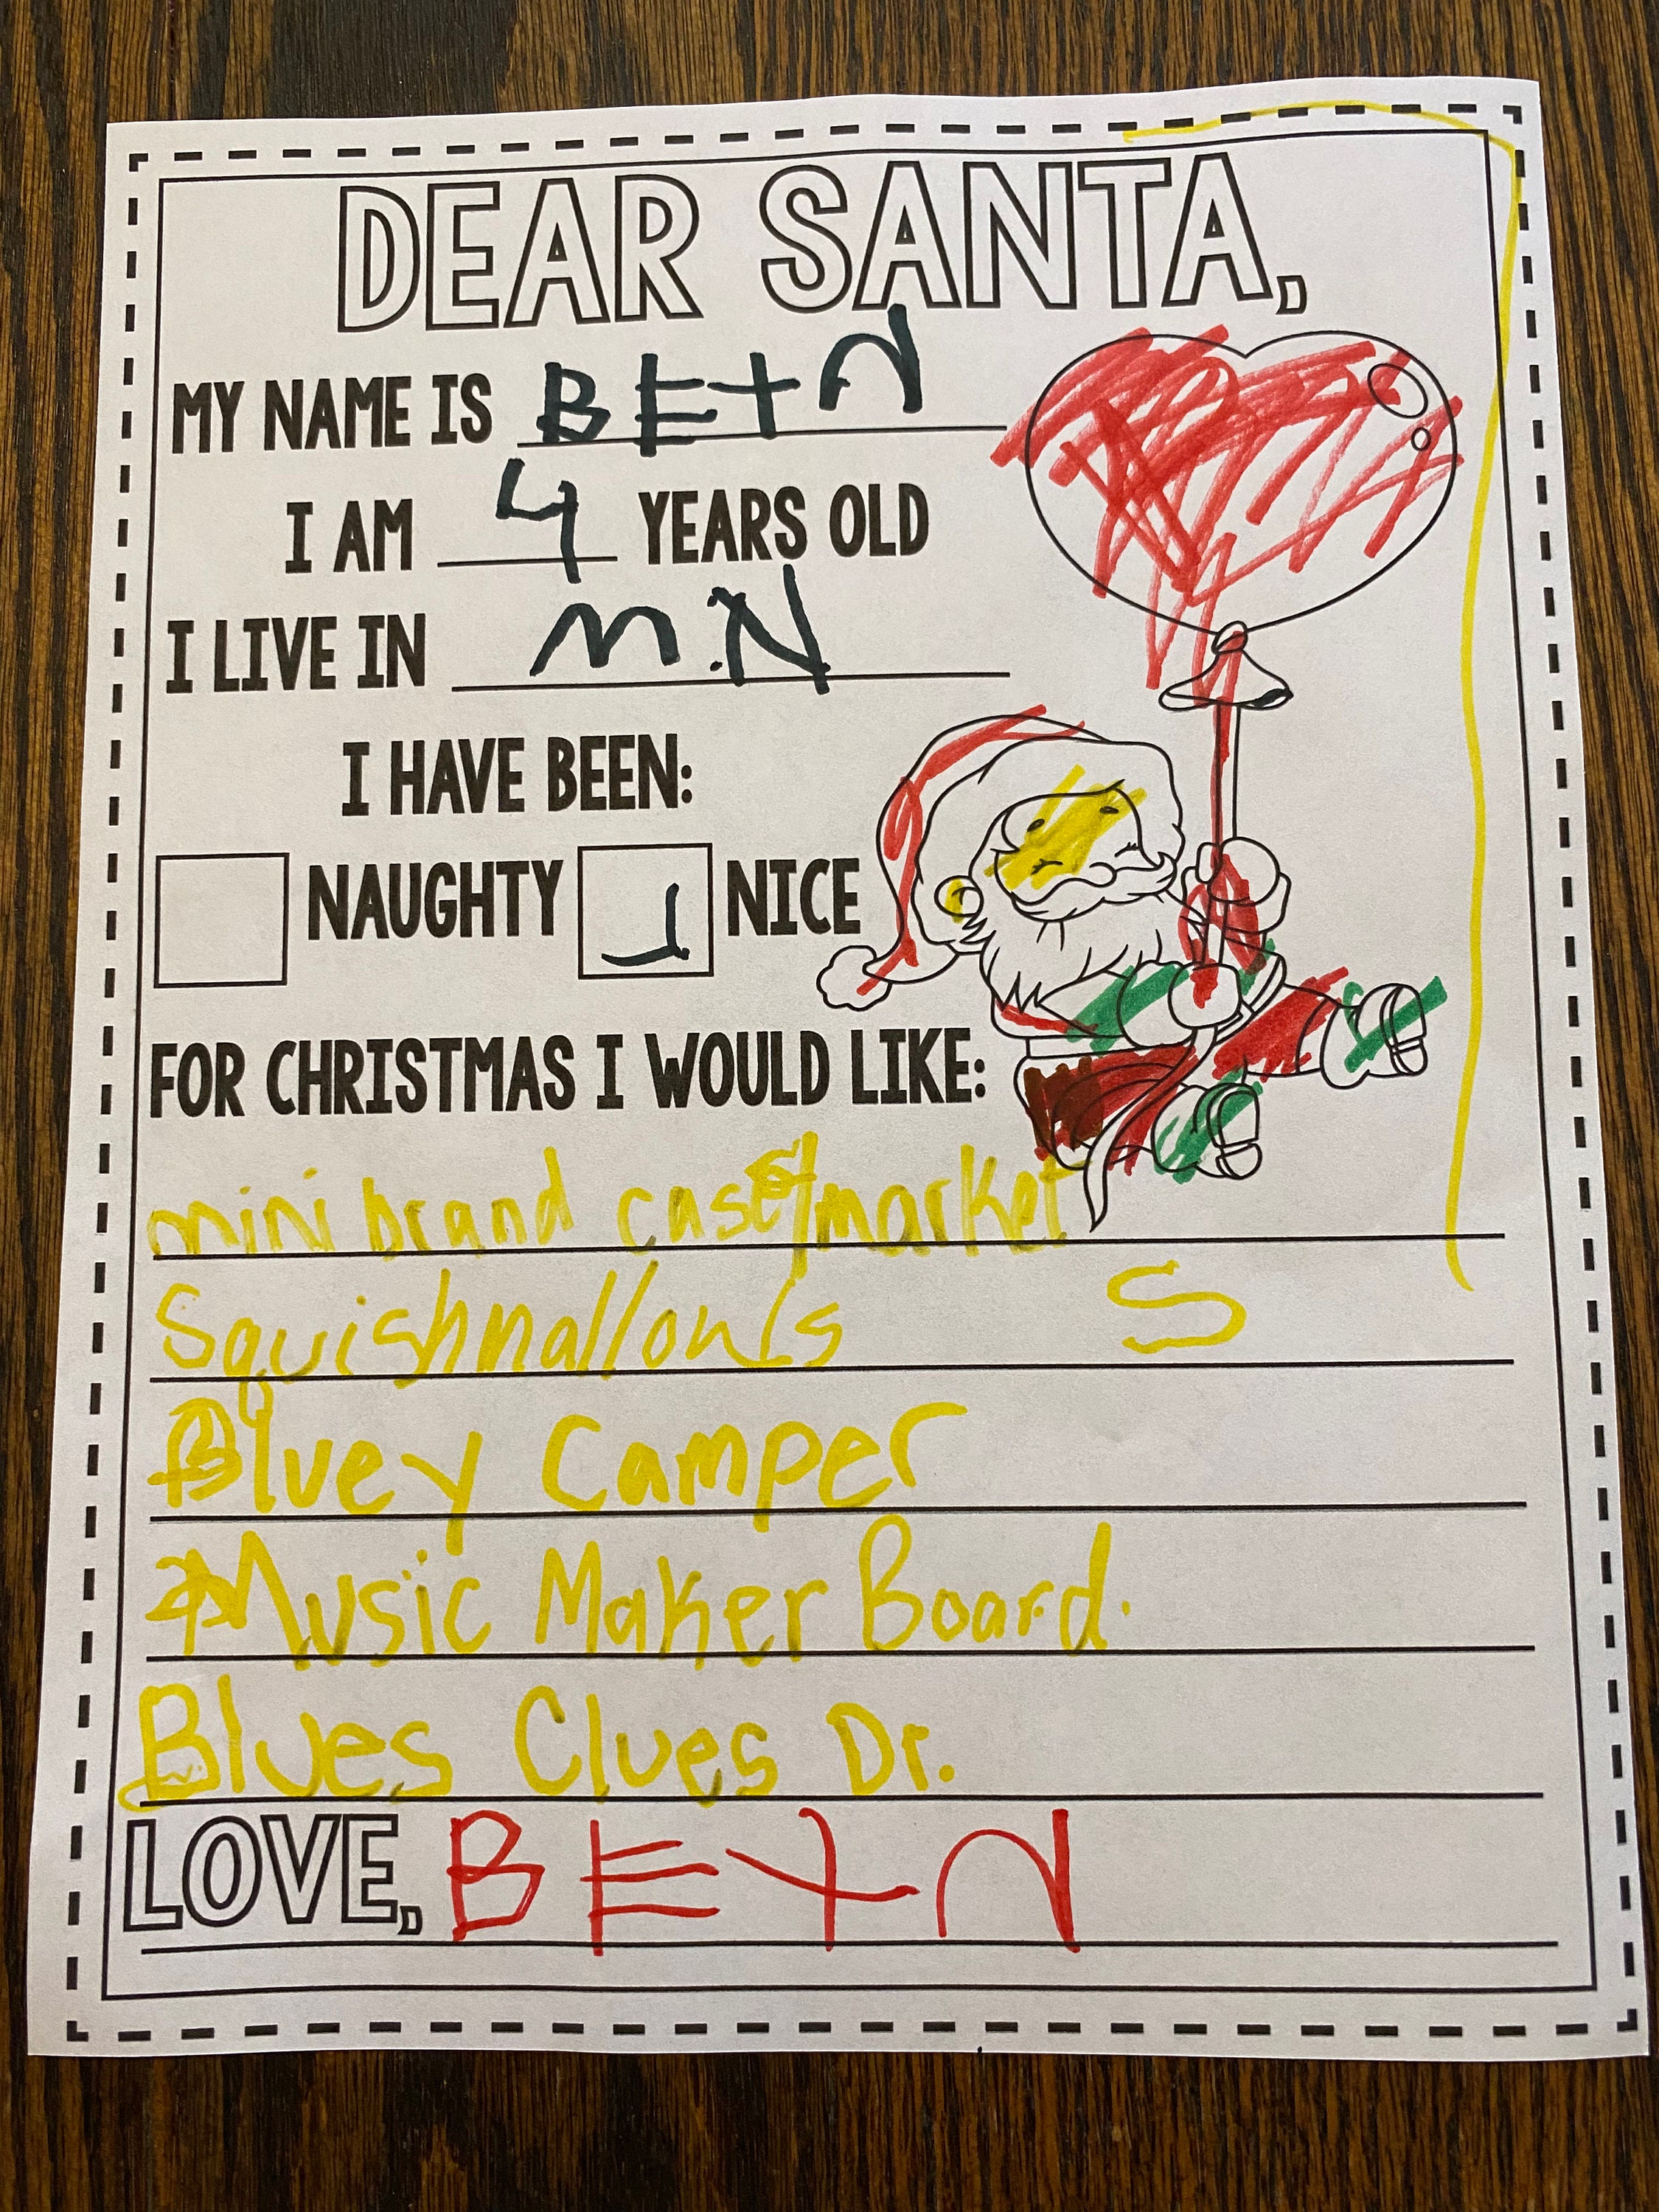 DEAR SANTA,
MY NAME IS BETH
I AM 4 YEARS OLD
I LIVE IN M.N
I HAVE BEEN:
NAUGHTY NICE
FOR CHRISTMAS I WOULD LIKE:
mini brand case/market
Squishmallows S
Bluey Camper
Music Maker Board.
Blues Clues Dr.
LOVE, BETH